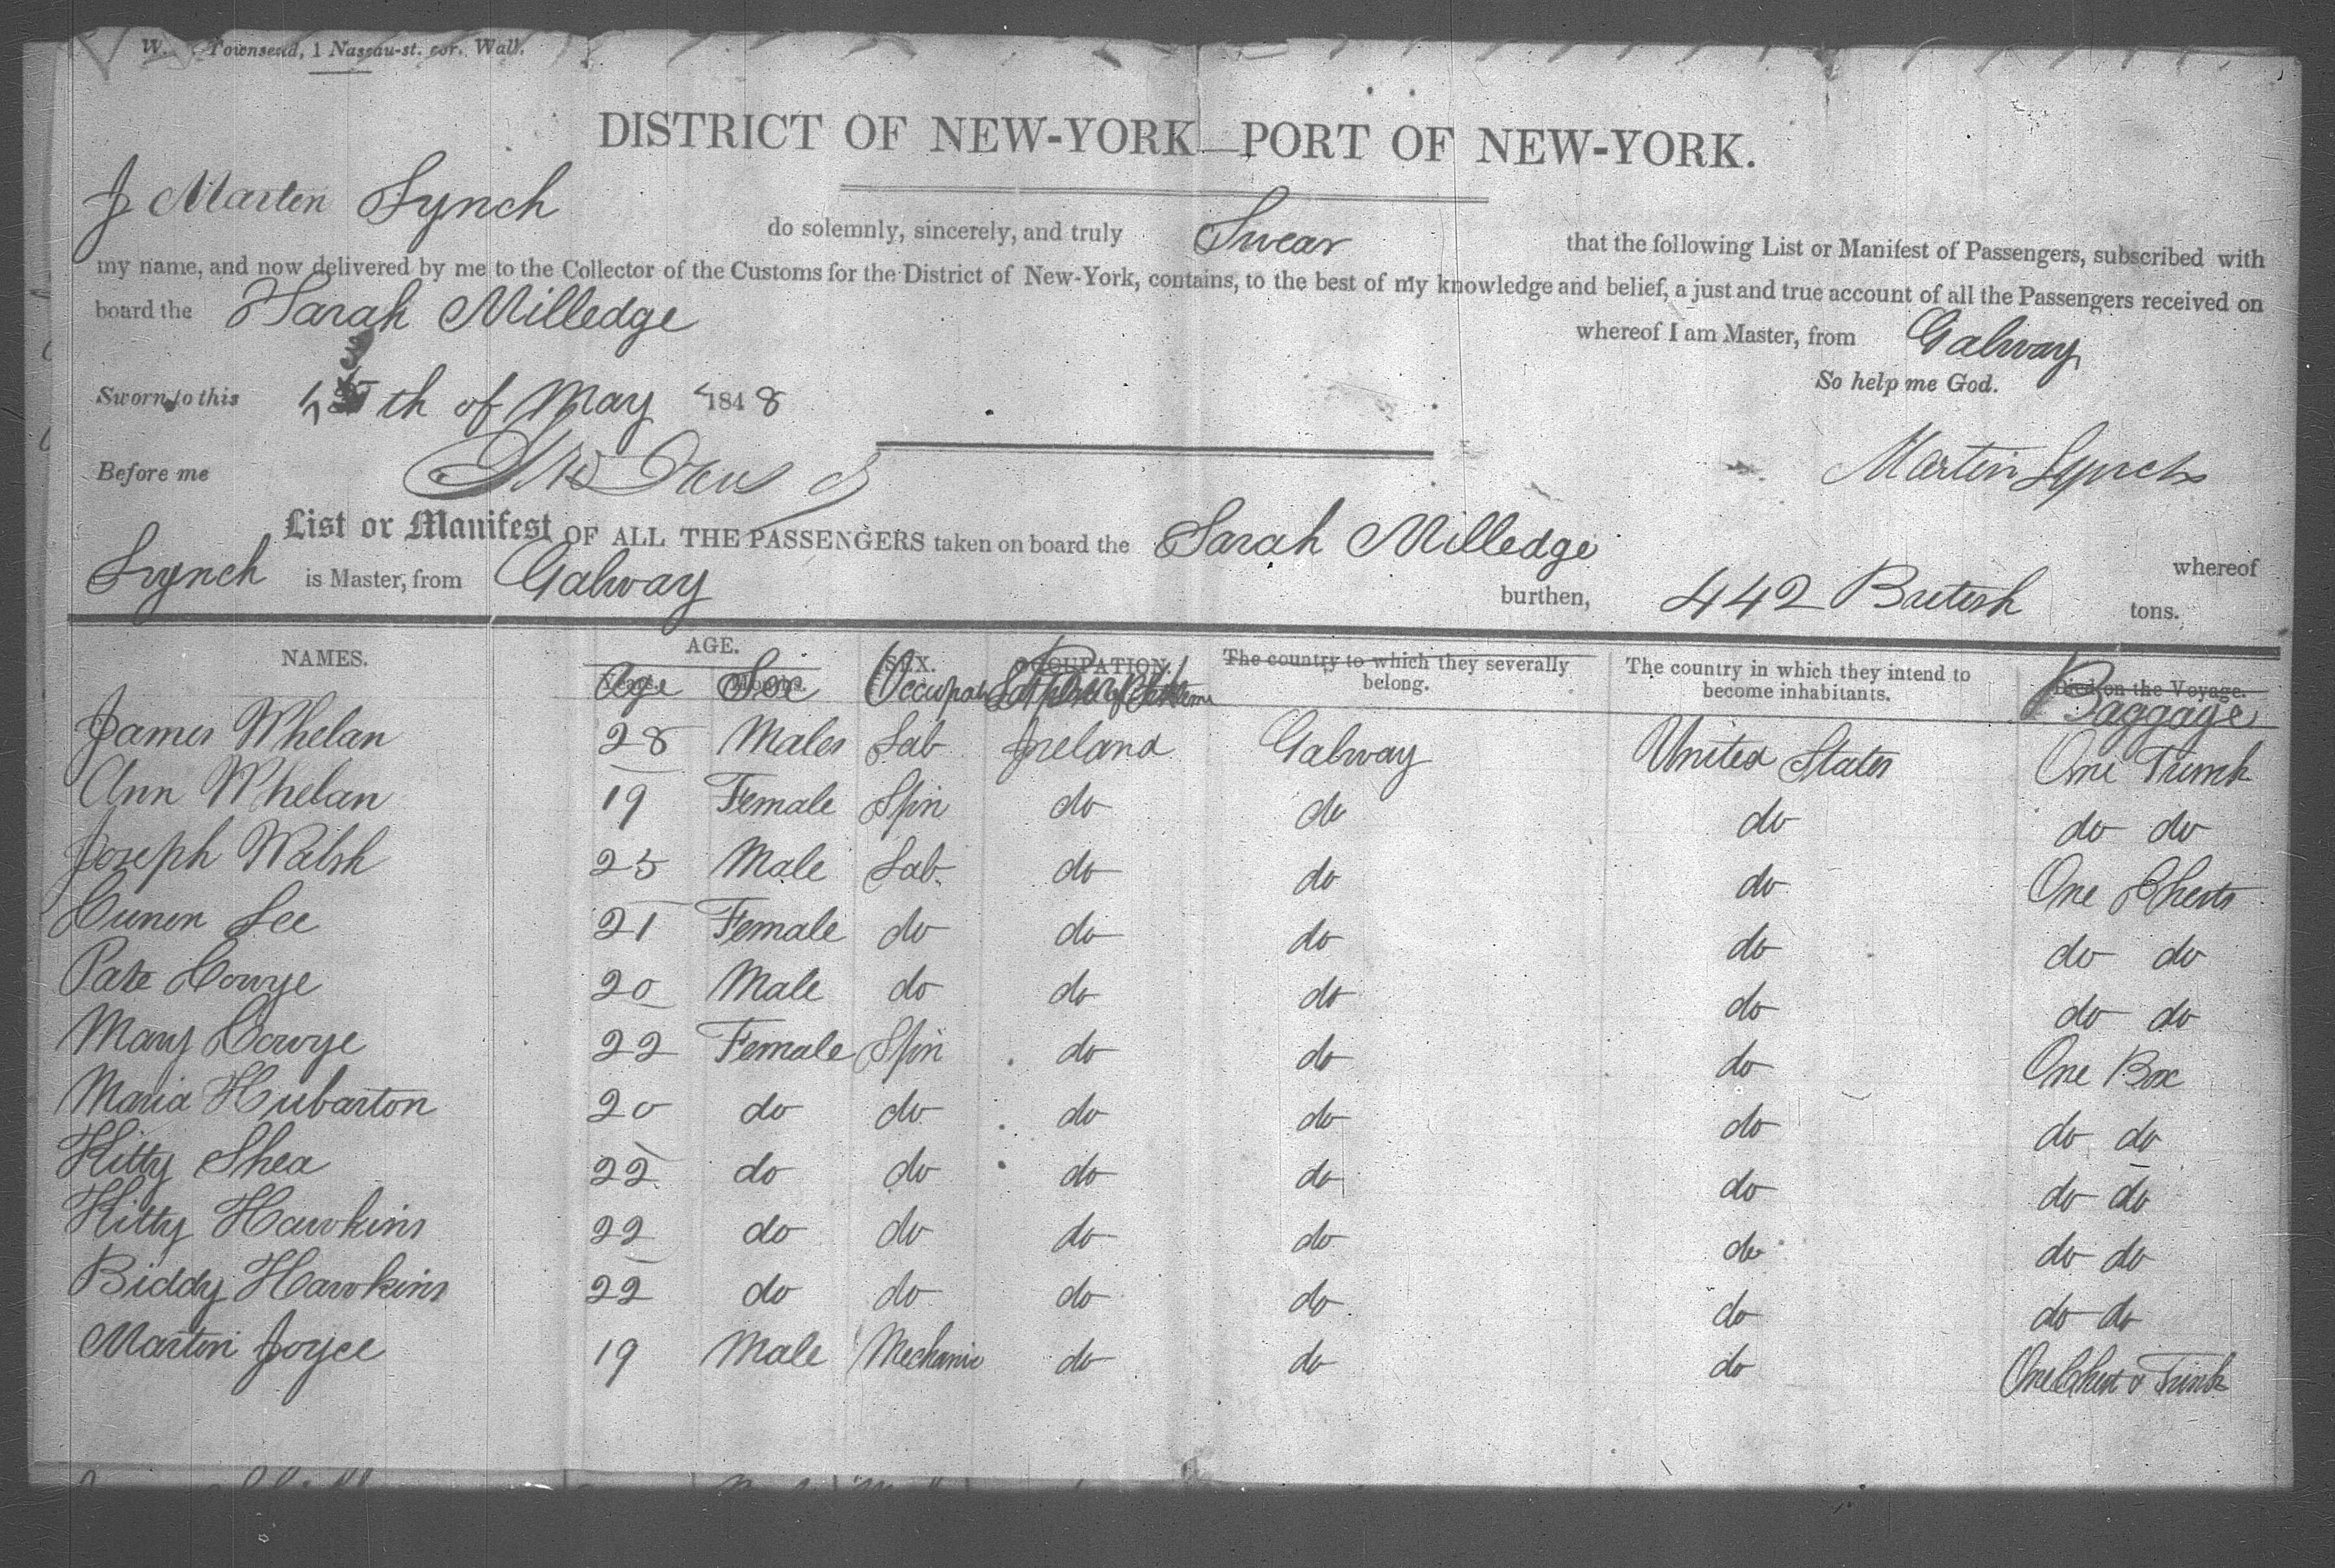 Townsend, 1 Nassau-st. cor. Wall.
DISTRICT OF NEW-YORK—PORT OF NEW-YORK.
I Marten Lynch do solemnly, sincerely, and truly Swear that the following List or Manifest of Passengers, subscribed with
my name, and now delivered by me to the Collector of the Customs for the District of New-York, contains, to the best of my knowledge and belief, a just and true account of all the Passengers received on
board the Sarah Milledge whereof I am Master, from Galway
So help me God.
Sworn to this th of May 1848
Martin Lynch
Before me
List or Manifest OF ALL THE PASSENGERS taken on board the Sarah Milledge whereof
Lynch is Master, from Galway burthen, 442 British tons.
NAMES. AGE. SEX. OCCUPATION. The country to which they severally belong. The country in which they intend to become inhabitants. Died on the Voyage.
Age Sex Occupat Baggage
James Whelan 28 Males Lab Ireland Galway United States One Trunk
Ann Whelan 19 Female Spin do do do do do
Joseph Walsh 25 Male Lab. do do do One Chests
Cunen Lee 21 Female do do do do do do
Pate Cowye 20 Male do do do do do do
Mary Cowye 22 Female Spin do do do One Box
Maria Hubarton 20 do do do do do do do
Kitty Shea 22 do do do do do do do
Kitty Hawkins 22 do do do do do do do
Biddy Hawkins 22 do do do do do do do
Martin Joyce 19 Male Mechanic do do do One Chest & Trunk